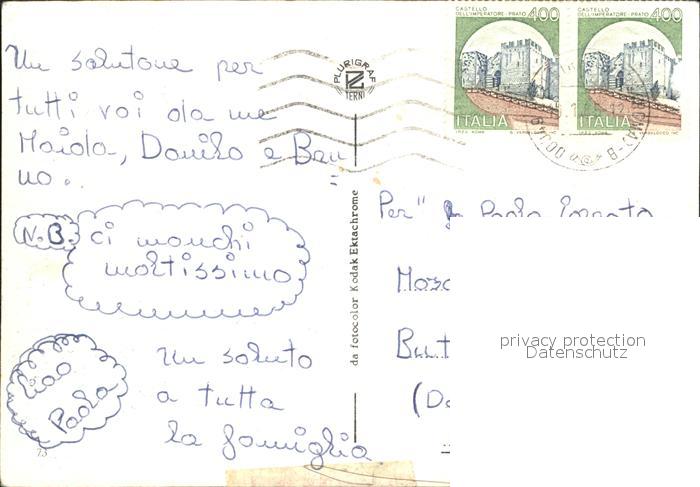 Un salutone per
tutti voi da me
Maida, Danilo e Bru
no..
N.B. ci manchi
moltissimo
Ciao
Paola
Un saluto
a tutta
la famiglia
73
PLURIGRAF
TERNI
da fotocolor Kodak Ektachrome
CASTELLO
DELL'IMPERATORE - PRATO 400
ITALIA
CASTELLO
DELL'IMPERATORE - PRATO 400
ITALIA
Per" Paola
privacy protection
Datenschutz